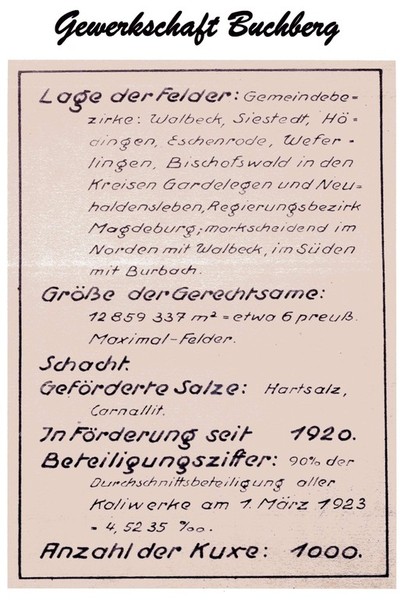 Gewerkschaft Buchberg
Lage der Felder: Gemeindebe-
zirke: Walbeck, Siestedt, Hö-
dingen, Eschenrode, Wefer-
lingen, Bischofswald in den
Kreisen Gardelegen und Neu-
haldensleben, Regierungsbezirk
Magdeburg; markscheidend im
Norden mit Walbeck, im Süden
mit Burbach.
Größe der Gerechtsame:
12 859 337 m² = etwa 6 preuß.
Maximal-Felder.
Schacht.
Geförderte Salze: Hartsalz,
Carnallit.
In Förderung seit 1920.
Beteiligungsziffer: 90% der
Durchschnittsbeteiligung aller
Kaliwerke am 1. März 1923
= 4,5235 ‰.
Anzahl der Kuxe: 1000.